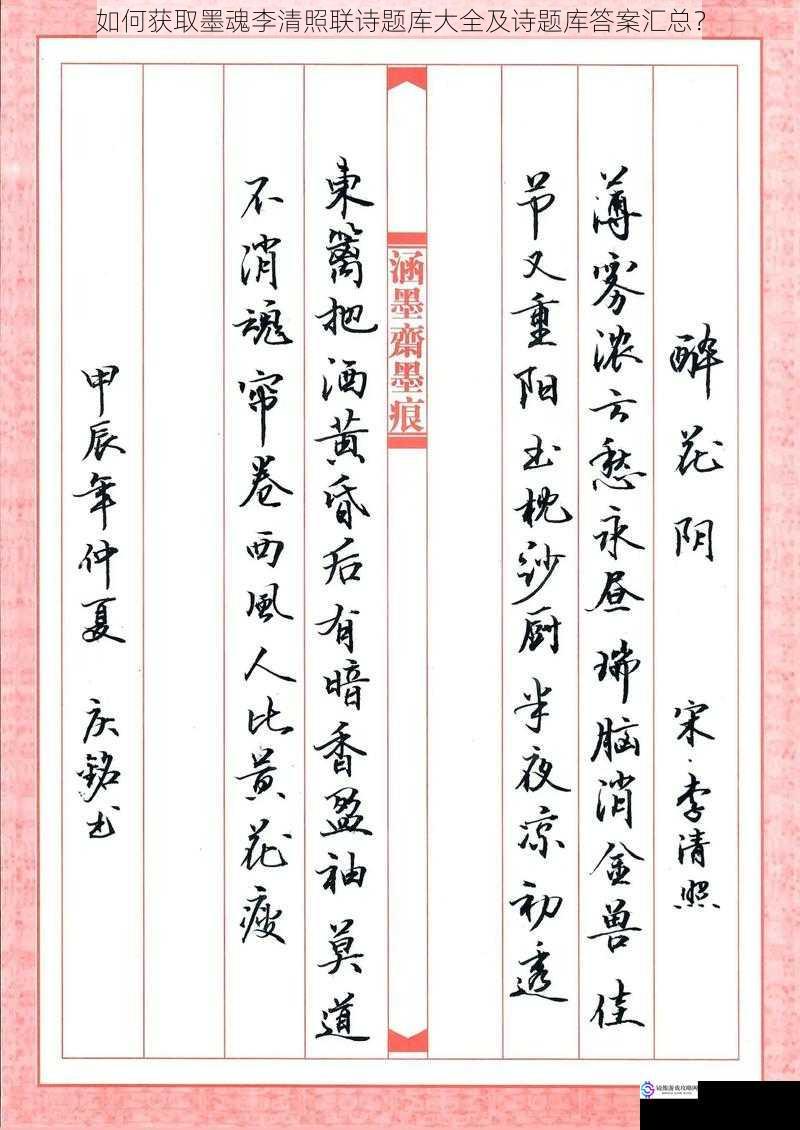 如何获取墨魂李清照联诗题库大全及诗题库答案汇总？
醉花阴 宋·李清照
薄雾浓云愁永昼瑞脑消金兽佳
节又重阳玉枕纱厨半夜凉初透
涵墨齋墨痕
東篱把酒黄昏后有暗香盈袖莫道
不消魂帘卷西風人比黄花瘦
甲辰年仲夏 庆銘书